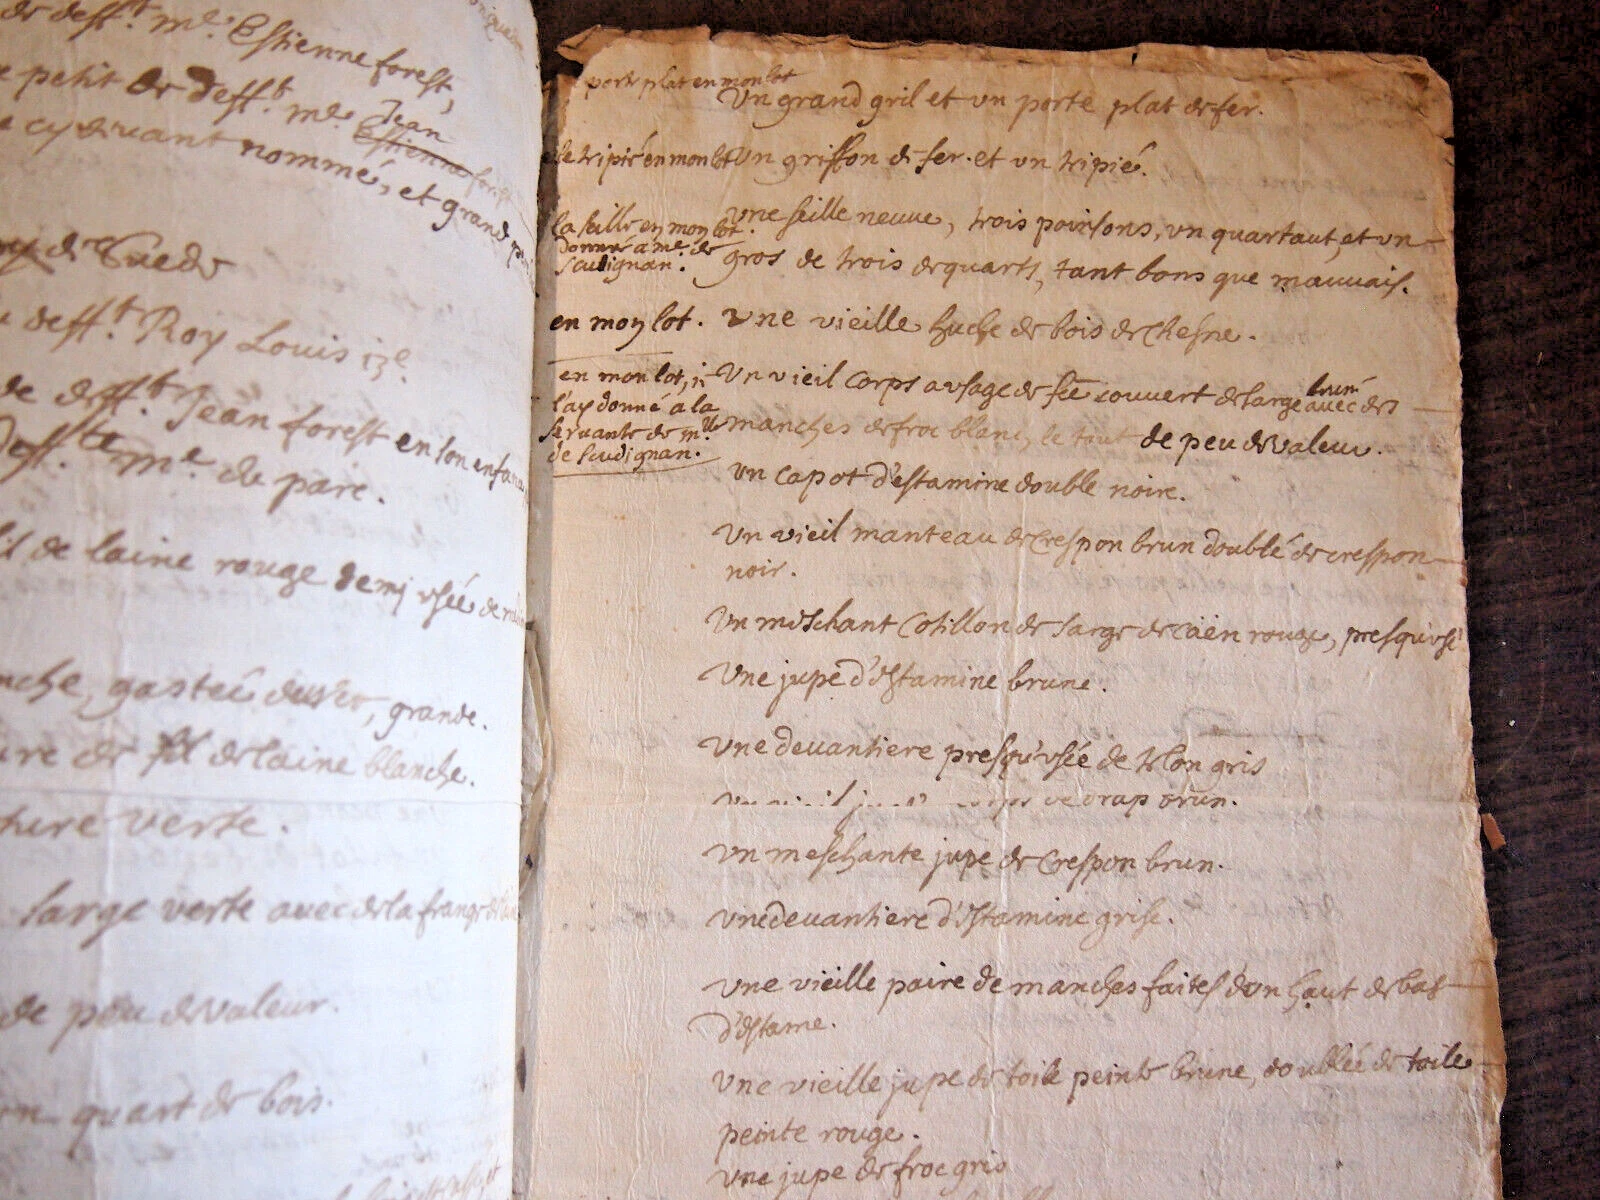 de deff.t m.e Estienne forest,
petit de deff.t m.e Jean
Estienne forest
cy devant nommé, et grand
de Suede
deff.t Roy Louis 13e.
de deff.t Jean forest en son enfance
deff.te m.e de parc.
de laine rouge demj usée
gastée, grande.
de fil de laine blanche.
verte.
sarge verte avec de la frange de
de peu de valeur.
quart de bois.
porte plat en mon lot
Un grand gril et un porte plat de fer.
le tripié en mon lot
Un griffon de fer. et un tripié.
la seille en mon lot.
donné a me. de
Savignan.
Une seille neuve, trois poinsons, un quartaut, et un
gros de trois de quarts, tant bons que mauvais.
en mon lot.
Une vieille huche de bois de chesne.
en mon lot, je
l'ay donné a la
servante de m.lle
de Savignan.
Un vieil corps a usage de fẽe couvert de sarge brune avec des
manches de froc blanc, le tout de peu de valeur.
un capot d'estamine double noire.
Un vieil manteau de crespon brun doublé de crespon
noir.
Un meschant cotillon de sarge de caën rouge, presqu'usé
Une jupe d'estamine brune.
Une devantiere presqu'usée de gris
de drap brun.
un meschante jupe de crespon brun.
une devantiere d'estamine grise.
Une vieille paire de manches faites d'un haut de bas
d'estame.
une vieille jupe de toile peinte brune, doublée de toile
peinte rouge.
Une jupe de froc gris